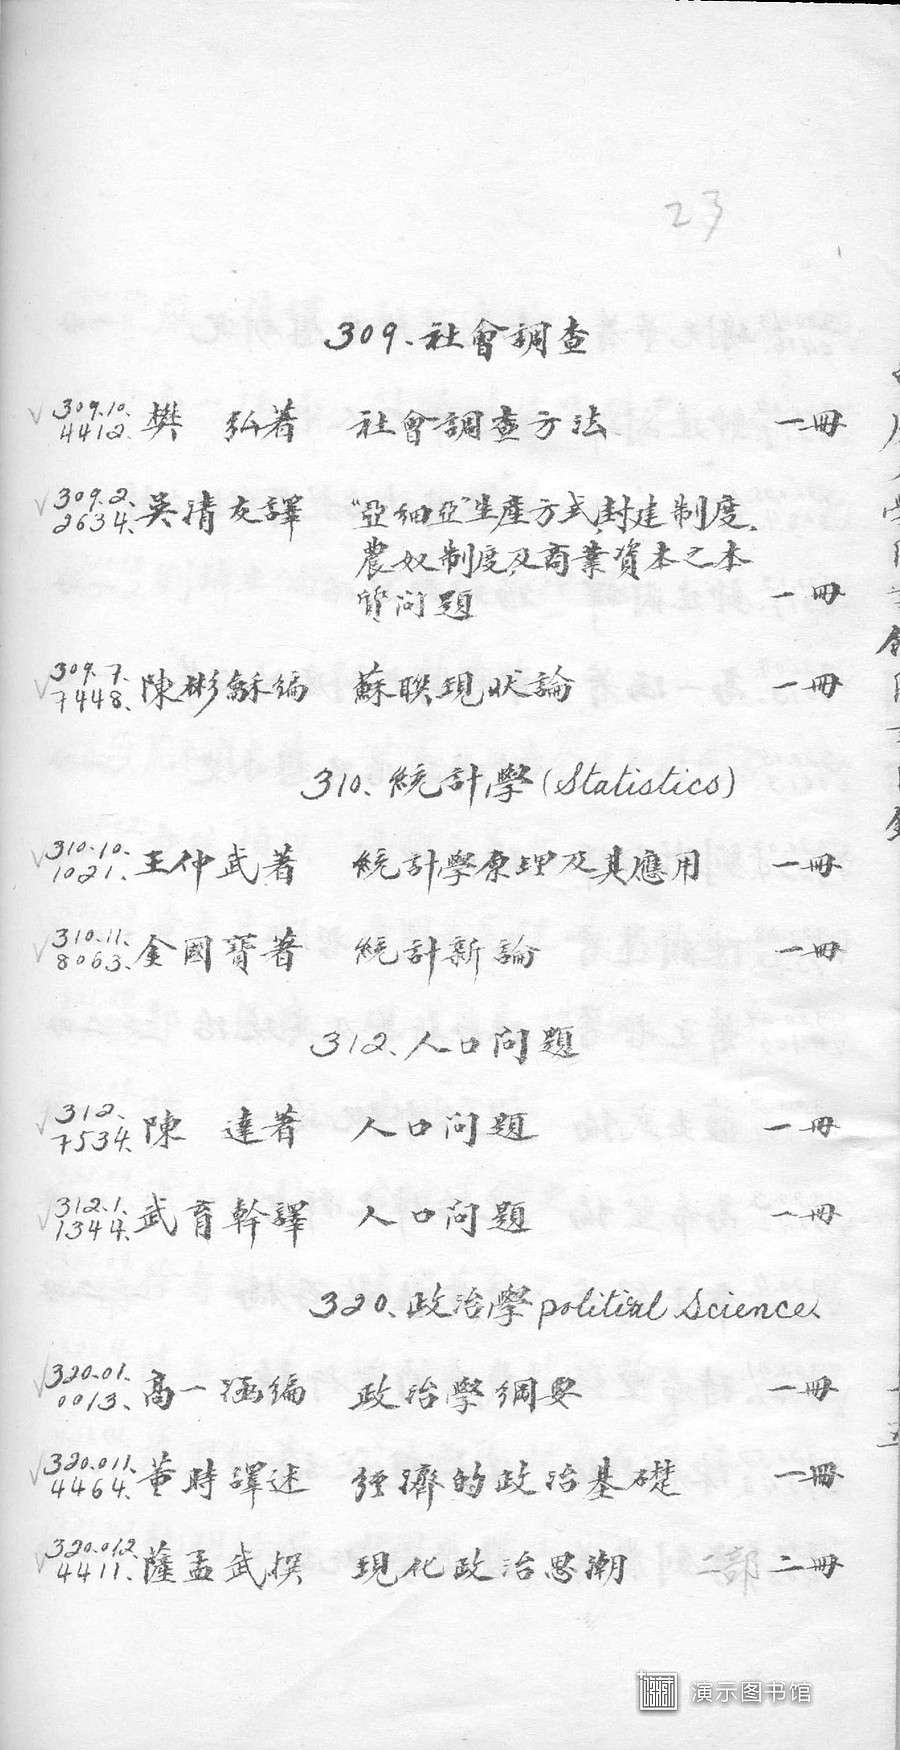 23
309. 社會調查
√ 309.10. 樊 弘著 社會調查方法 一冊
4412.
√ 309.2. 吳清友譯 "亞細亞"生產方式,封建制度,
2634.
農奴制度及商業資本之本
質问題 一冊
√ 309.7. 陳彬龢编 蘇联現狀論 一冊
7448.
310. 統計學 (Statistics)
√ 310.10. 王仲武著 統計學原理及其應用 一冊
1021.
√ 310.11. 金國寶著 統計新論 一冊
8063.
312. 人口问題
√ 312. 陳 達著 人口问題 一冊
7534.
√ 312.1. 武育幹譯 人口问題 一冊
1344.
320. 政治學 political Science
√ 320.01. 高一涵编 政治學綱要 一冊
0013.
√ 320.011. 董時譯述 經濟的政治基礎 一冊
4464.
√ 320.012. 薩孟武撰 現化政治思潮 二部 二冊
4411.
演示图书馆